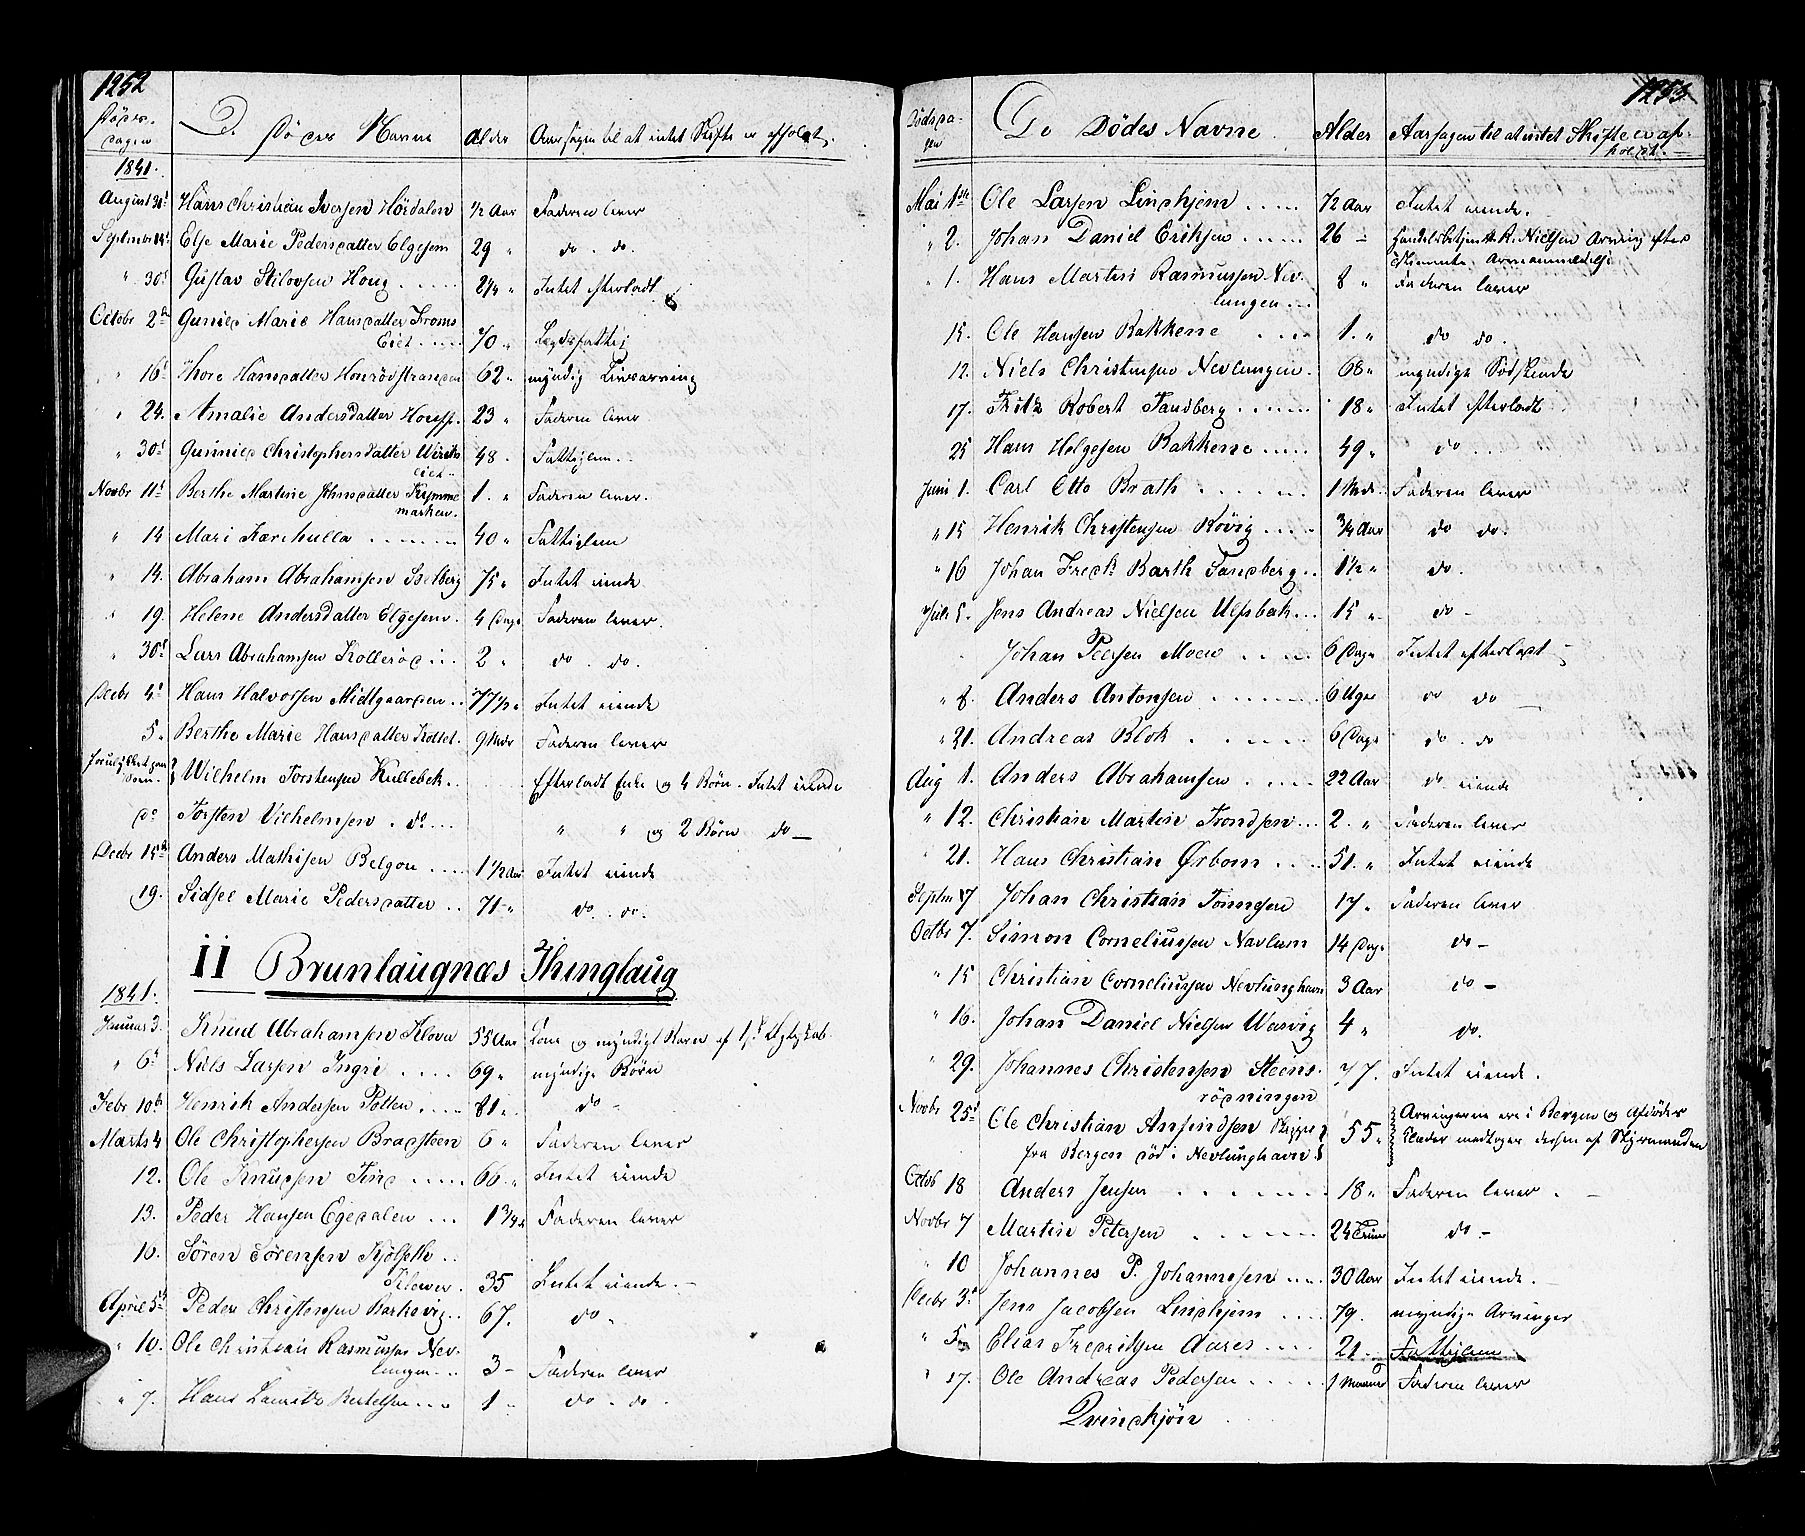 1252
Dödsdagen De Dödes Navne Alder Aarsagen til at intet Skifte er afholdt.
1841.
August 31 Hans Christian Iversen Hördalen 1/2 Aar Faderen lever
Septmbr 14 Else Marie Pedersdatter Elgesem 29 " do. do.
" 30 Gustav Houg 2 1/4 " Intet efterladt
Octobr 2 Gunild Marie Hansdatter
Eiet 70 " Lægdsfattig
" 16 Thore Hansdatter 62 " myndig Livsarving
" 24. Amalie Andersdatter 23 " Faderen lever
" 30 Gunnild Christophersdatter
eiet 48 . Fattiglem
Novbr 11 Berthe Martine Johnsdatter
marken. 1. " Faderen lever.
" 14 Mari Karihulla 40 " Fattiglem
" 14. Abraham Abrahamsen 75 " Intet eiende
" 19. Helene Andersdatter Elgesem. 4 Dage Faderen lever.
" 30 Lars Abrahamsen Kolleröd 2 " do. do.
Decbr 4 Hans Halvorsen Midtgaarden 77 1/2 " Intet eiende
5 " Berthe Marie Hansdatter 9 Mdr Faderen lever
Wilhelm Torstensen Kullebek. Efterladt Enke og 4 Börn. Intet eiende
do Torsten Vilhelmsen. do " " og 2 Börn do —
Decbr 15 Anders Mathisen Belgon 1 1/2 Aar Intet eiende
19. Sidsel Marie Pedersdatter 71 " do. do.
11 Brunlaugnæs Thinglaug
1841.
Januar 3. Knud Abrahamsen Klova 55 Aar Kone og myndigt Barn af 1ste Ægteskab.
" 6 Niels Larsen Ingri 69 " myndige Börn
Febr 10 Henrik Andersen Pollen 81 " do —
Marts 4 Ole Christophersen Bradsteen 6 " Faderen lever
12. Ole Knudsen Tind 66 " Intet eiende
13. Peder Hansen Egedalen 1 3/4 " Faderen lever
10. Sören Sörensen Kjölseth
35 Intet eiende. —
April 5 Peder Christensen Barkevig 67. do "
" 10. Ole Christian Rasmussen Nev-
lungen 3 — Faderen lever
" 7. Hans Lauritz Bertelsen 1 " do. do.
1253
Dödsdagen De Dödes Navne Alder Aarsagen til at intet Skifte er af-
holdt.
Mai 1ste Ole Larsen Lindhjem 72 Aar Intet eiende.
" 2. Johan Daniel Eriksen 26 — Handelsbetjent A. R. Nielsen Arving efter
Armanmeldelse
" 1. Hans Martin Rasmussen Nev-
lungen 8 " Faderen lever
15. Ole Hansen Bakkene 1. " do do.
12. Niels Christensen Nevlungen 68 " myndige Södskende
17. Fritz Robert Sandberg 18 " Intet efterladt
25 Hans Helgesen Bakkene 49 " do
Juni 1. Carl Otto Brath 1 Mdr. Faderen lever
" 15 Henrik Christensen Rövig 3/4 Aar do do.
" 16 Johan Fredk Barth Sandberg 1 1/2 " do.
Juli 5. Jens Andreas Nielsen Ulfsbak 15 " do —
Johan Pedersen Moen 6 Dage Intet efterladt
" 8. Anders Antonsen 6 Uger do do —
" 21. Andreas Blok 6 Dage do. do
Aug 1. Anders Abrahamsen 22 Aar do eiende
" 12. Christian Martin Trondsen 2. " Faderen lever
" 21. Hans Christian Ørbom 51. " Intet eiende
Septm 17 Johan Christian Tönnesen 17 " Faderen lever
Octbr 7. Simon Corneliussen Navlum 14 Dage do —
" 15 Christian Corneliussen Nevlunghavn 3 Aar do —
" 16. Johan Daniel Nielsen Wasvig 4 " do.
" 29. Johannes Christensen Steens-
rödningen 77. Intet eiende.
Novbr 25 Ole Christian Amundsen Skipper
fra Bergen död i Nevlunghavn 55 " Arvingerne ere i Bergen og Afdödes
Klæder modtoges dersen af Styrmanden
Octbr 18 Anders Jensen 18 " Faderen lever. —
Novbr 7 Martin Petersen 24 Timer do —
" 10 Johannes P. Johannesen 30 Aar Intet eiende.
Decbr 3 Jens Jacobsen Lindhjem 79. myndige Arvinger
" 5 Elias Fredriksen Aares 21. Fattiglem
" 17. Ole Andreas Pedersen 1 Maaned Faderen lever
Qvindkjön